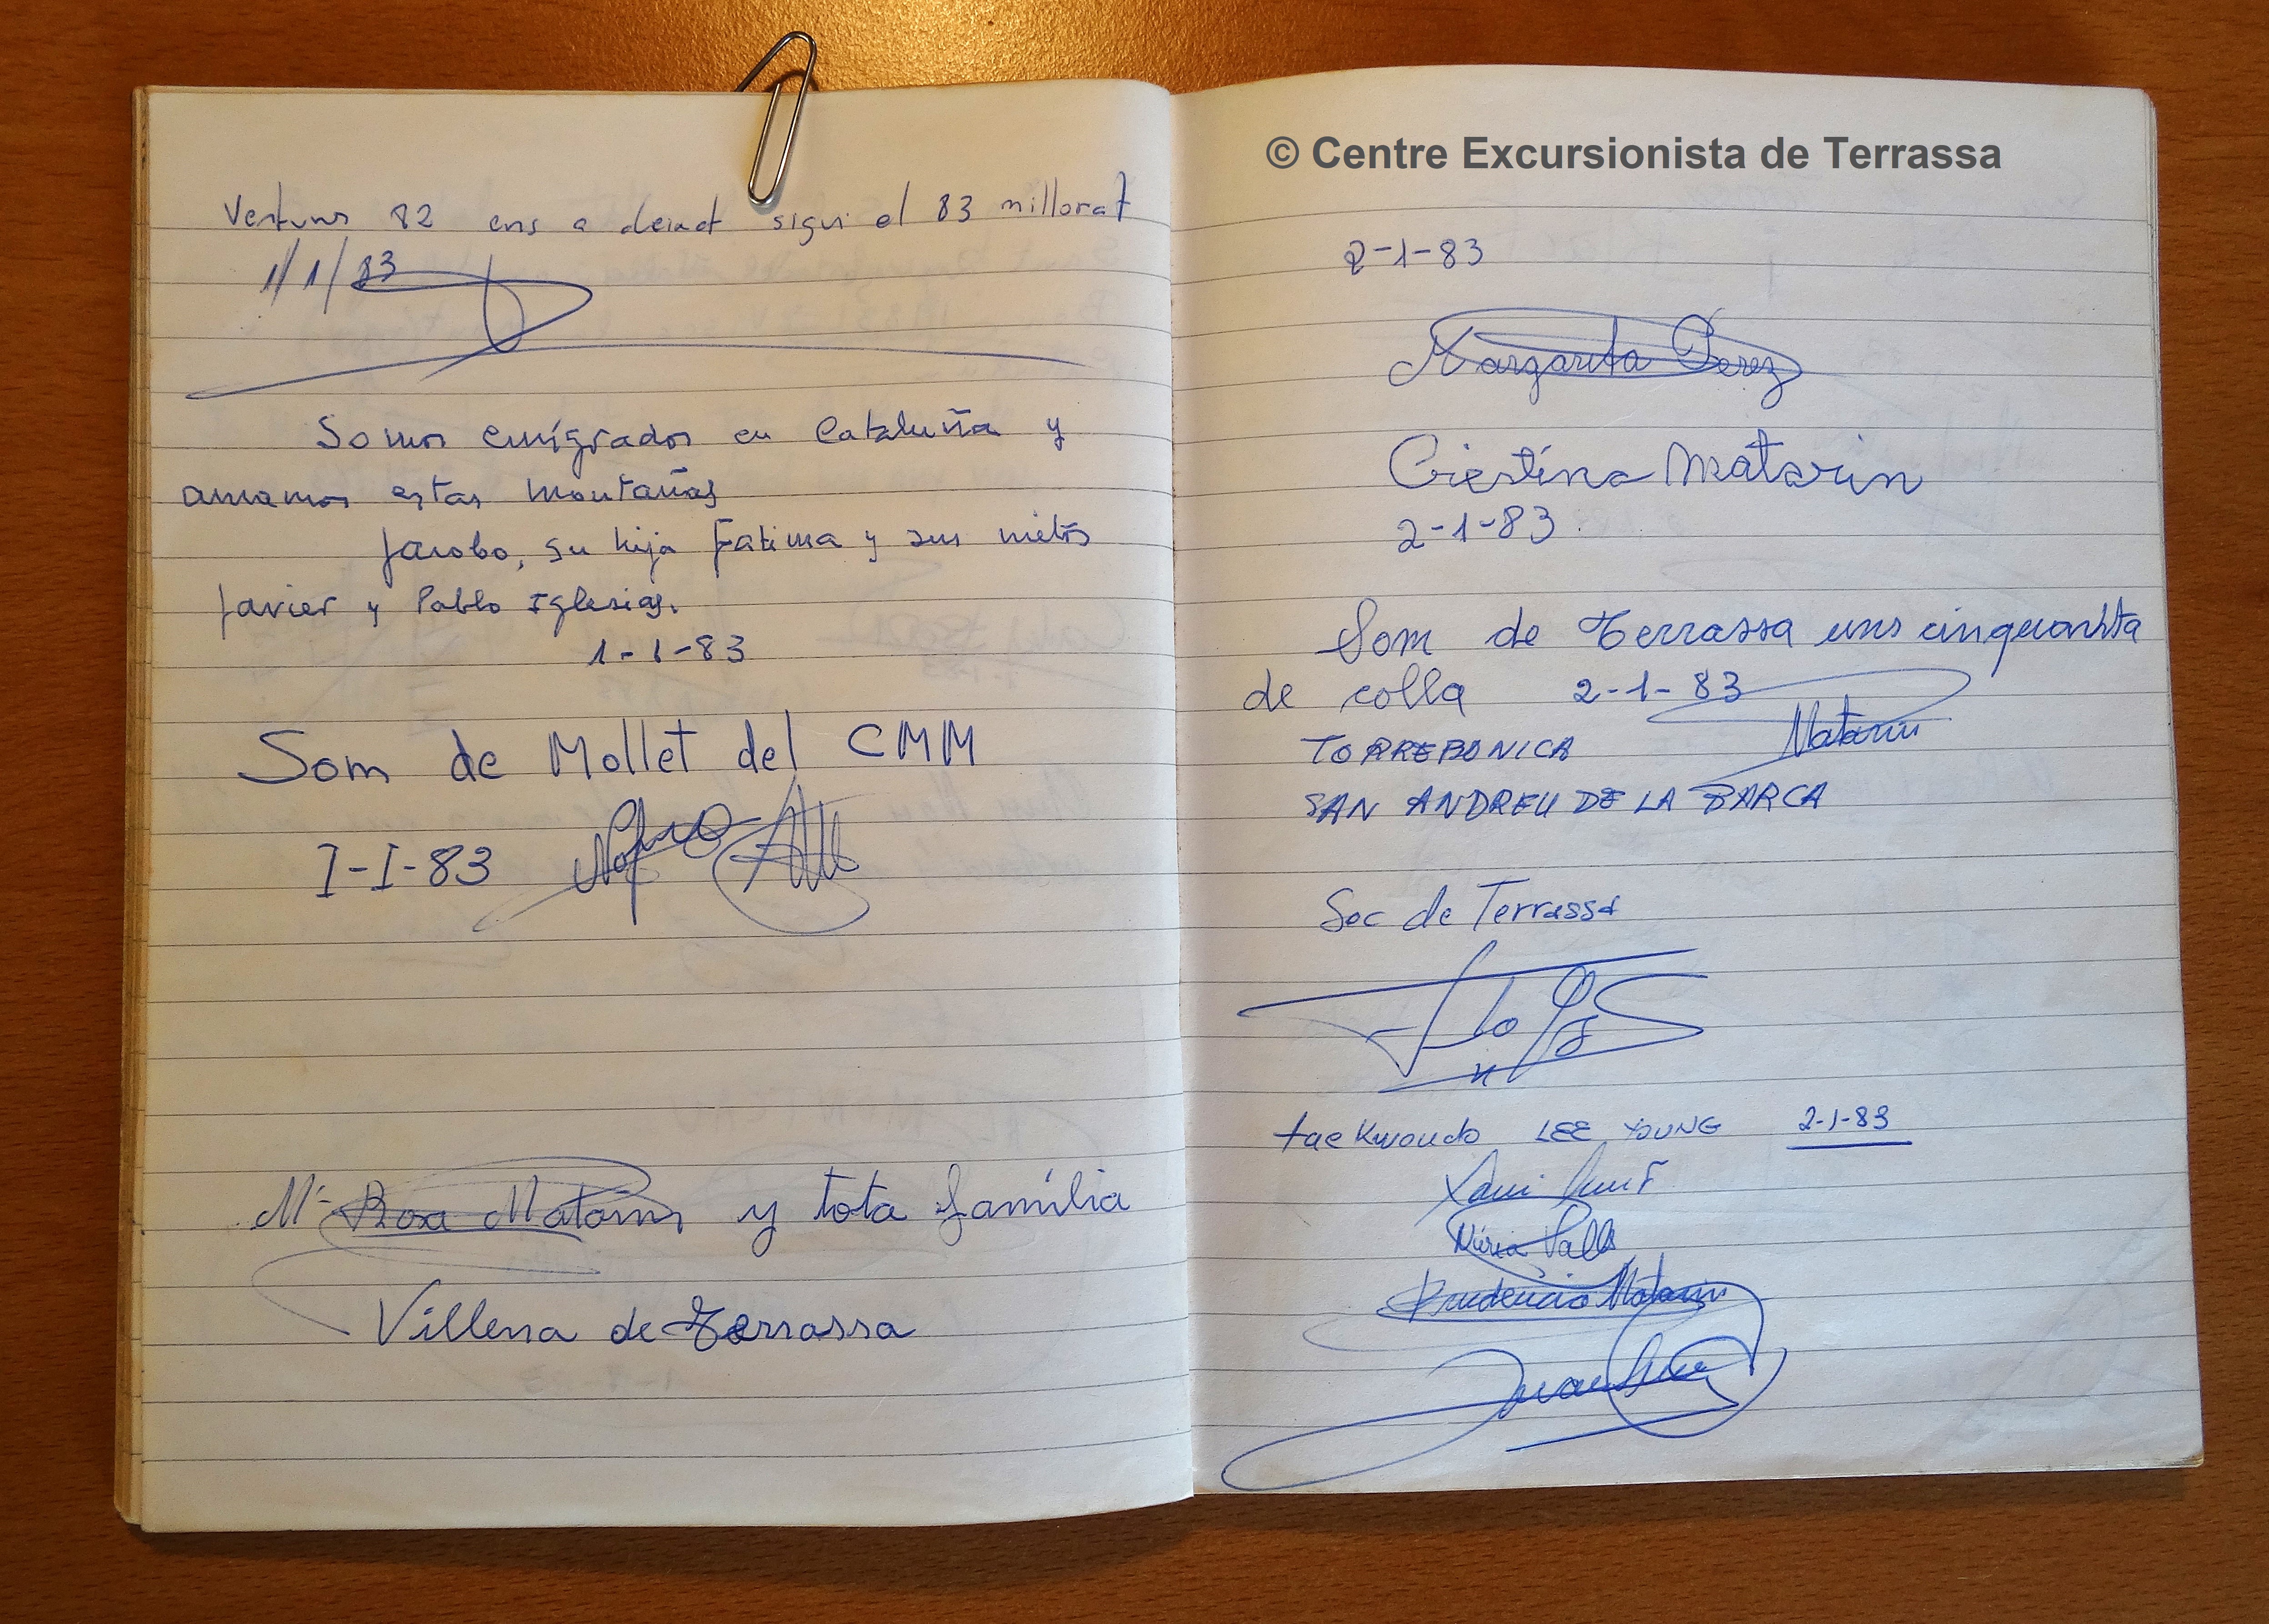 82 ens a deixat sigui el 83 millorat
1/1/83
Somos emigrados en Cataluña y
amamos estas montañas
Jacobo, su hija Fatima y sus nietos
Javier y Pablo Iglesias.
1-1-83
Som de Mollet del CMM
I-I-83
Mª Rosa Matarin y tota família
Villena de Terrassa
© Centre Excursionista de Terrassa
2-1-83
Margarita Perez
Cristina Matarin
2-1-83
Som de Terrassa uns cinquanta
de colla 2-1-83
Matarin
TORREBONICA
SAN ANDREU DE LA BARCA
Soc de Terrassa
taekwondo LEE YOUNG 2-1-83
Xavi
Núria Valls
Prudencio Matarin
Juan